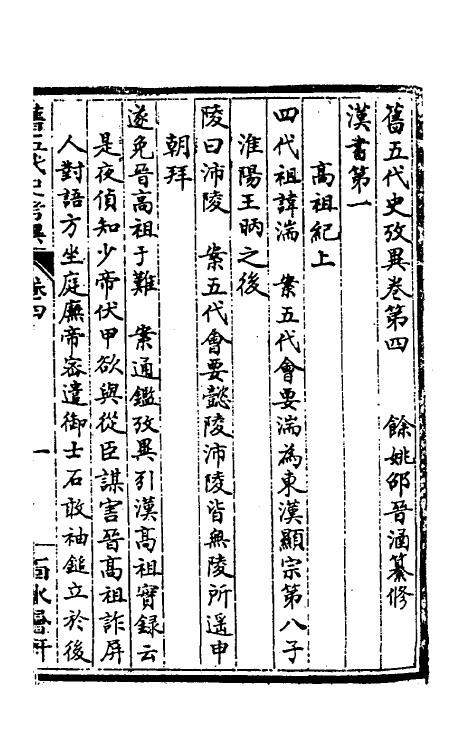 舊五代史攷異卷第四　餘姚邵晉涵纂修
漢書第一
高祖紀上
四代祖諱湍　案五代會要湍為東漢顯宗第八子
淮陽王昞之後
陵曰沛陵　案五代會要懿陵沛陵皆無陵所遥申
朝拜
遂免晉高祖于難　案通鑑攷異引漢高祖實錄云
是夜偵知少帝伏甲欲與從臣謀害晉高祖詐屏
人對語方坐庭廡帝密遣御士石敢袖鎚立於後
舊五代史考異　卷四　一　面水層軒